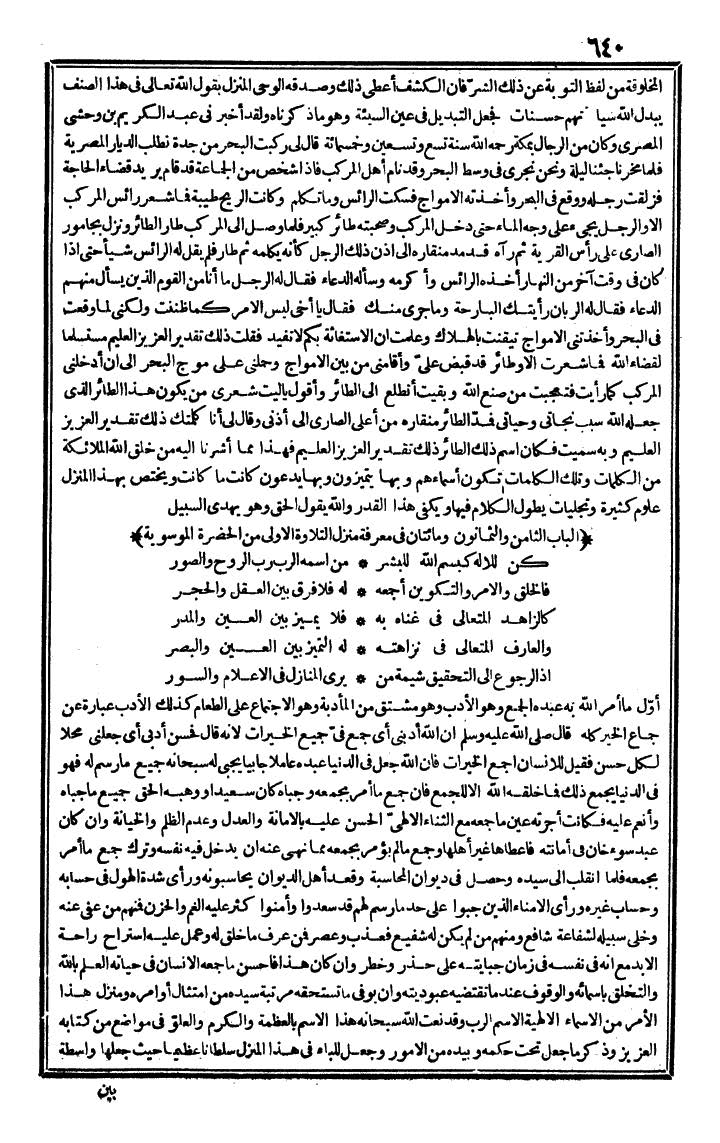 ٦٤٠
المخلوقة من لفظ التوبة عن ذلك الشرّ فان الكشف أعطى ذلك وصدقه الوحى المنزل بقول الله تعالى فى هذا الصنف
يبدل الله سيا تهم حسنات فجعل التبديل فى عين السيئة وهو ما ذكرناه ولقد أخبر فى عبد الكريم بن وحشى
المصرى وكان من الرجال بمكة رحمه الله سنة تسع وتسعين وخمسمائة قال لى ركبت البحر من جدة نطلب الديار المصرية
فلما مخرنا جئنا ليلة ونحن نجرى فى وسط البحر وقد نام أهل المركب فاذا شخص من الجماعة قد قام يريد قضاء الحاجة
فزلقت رجله ووقع فى البحر وأخذته الامواج فسكت الرائس وما تكلم وكانت الريح طيبة فما شعر رائس المركب
الا والرجل يجىء على وجه الماء حتى دخل المركب وصحبته طائر كبير فلما وصل الى المركب طار الطائر ونزل بجامور
الصارى على رأس القرية ثم رآه قد مد منقاره الى اذن ذلك الرجل كأنه يكلمه ثم طار فلم يقل له الرائس شيأ حتى اذا
كان فى وقت آخر من النهار أخذه الرائس وأكرمه وسأله الدعاء فقال له الرجل ما أنا من القوم الذين يسأل منهم
الدعاء فقال له الربان رأيتك البارحة وما جرى منك فقال يا أخى ليس الامر كما ظننت ولكنى لما وقعت
فى البحر وأخذتنى الامواج تيقنت بالهلاك وعلمت ان الاستغاثة بكم لا تفيد فقلت ذلك تقدير العزيز العليم مستسلما
لقضاء الله فما شعرت الا وطائر قد قبض علىّ وأقامنى من بين الامواج وحملنى على موج البحر الى ان أدخلنى
المركب كما رأيت فتعجبت من صنع الله وبقيت أتطلع الى الطائر وأقول ياليت شعرى من يكون هذا الطائر الذى
جعله الله سبب نجاتى وحياتى فمد الطائر منقاره من أعلى الصارى الى أذنى وقال لى أنا كلمتك ذلك تقدير العزيز
العليم وبه سميت فكان اسم ذلك الطائر ذلك تقدير العزيز العليم فهذا مما أشرنا اليه من خلق الله الملائكة
من الكلمات وتلك الكلمات تكون أسماءهم وبها يتميزون وبها يدعون كانت ما كانت ويختص بهذا المنزل
علوم كثيرة وتجليات يطول الكلام فيها ويكفى هذا القدر والله يقول الحق وهو يهدى السبيل
﴿الباب الثامن والثمانون ومائتان فى معرفة منزل التلاوة الاولى من الحضرة الموسوية﴾
كن للاله كبسم الله للبشر * من اسمه الرب رب الروح والصور
فالخلق والامر والتكوين أجمعه * له فلا فرق بين العقل والحجر
كالزاهد المتعالى فى غناه به * فلا يميز بين العين والمدر
والعارف المتعالى فى نزاهته * له التميز بين العين والبصر
اذ الرجوع الى التحقيق شيمة من * يرى المنازل فى الاعلام والسور
أوّل ما أمر الله به عبده الجمع وهو الأدب وهو مشتق من المأدبة وهو الاجتماع على الطعام كذلك الأدب عبارة عن
جماع الخير كله قال صلى الله عليه وسلم ان الله أدبنى أى جمع فىّ جميع الخيرات لانه قال فحسن أدبى أى جعلنى محلا
لكل حسن فقيل للانسان اجمع الخيرات فان الله جعل فى الدنيا عبده عاملا جابيا يجبى له سبحانه جميع ما رسم له فهو
فى الدنيا يجمع ذلك فما خلقه الله الا للجمع فان جمع ما أمر بجمعه وجباه كان سعيدا ووهبه الحق جميع ما جباه
وأنعم عليه فكانت أجرته عين ما جمعه مع الثناء الالهىّ الحسن عليه بالامانة والعدل وعدم الظلم والخيانة وان كان
عبد سوء خان فى أمانته فاعطاها غير أهلها وجمع ما لم يؤمر بجمعه مما نهى عنه ان يدخل فيه نفسه وترك جمع ما أمر
بجمعه فلما انقلب الى سيده وحصل فى ديوان المحاسبة وقعد أهل الديوان يحاسبونه ورأى شدة الهول فى حسابه
وحساب غيره ورأى الامناء الذين جبوا على حد ما رسم لهم قد سعدوا وأمنوا كثر عليه الغم والحزن فمنهم من عفى عنه
وخلى سبيله لشفاعة شافع ومنهم من لم يكن له شفيع فعذب وعصر فمن عرف ما خلق له وعمل عليه استراح راحة
الابد مع انه فى نفسه فى زمان جبايته على حذر وخطر وان كان هذا فاحسن ما جمعه الانسان فى حياته العلم بالله
والتخلق باسمائه والوقوف عند ما تقتضيه عبوديته وان يوفى ما تستحقه مرتبة سيده من امتثال أوامره ومنزل هذا
الأمر من الاسماء الالهية الاسم الرب وقد نعت الله سبحانه هذا الاسم بالعظمة والكرم والعلو فى مواضع من كتابه
العزيز وذكر ما جعل تحت حكمه وبيده من الامور وجعل للباء فى هذا المنزل سلطانا عظيما حيث جعلها واسطة
بين